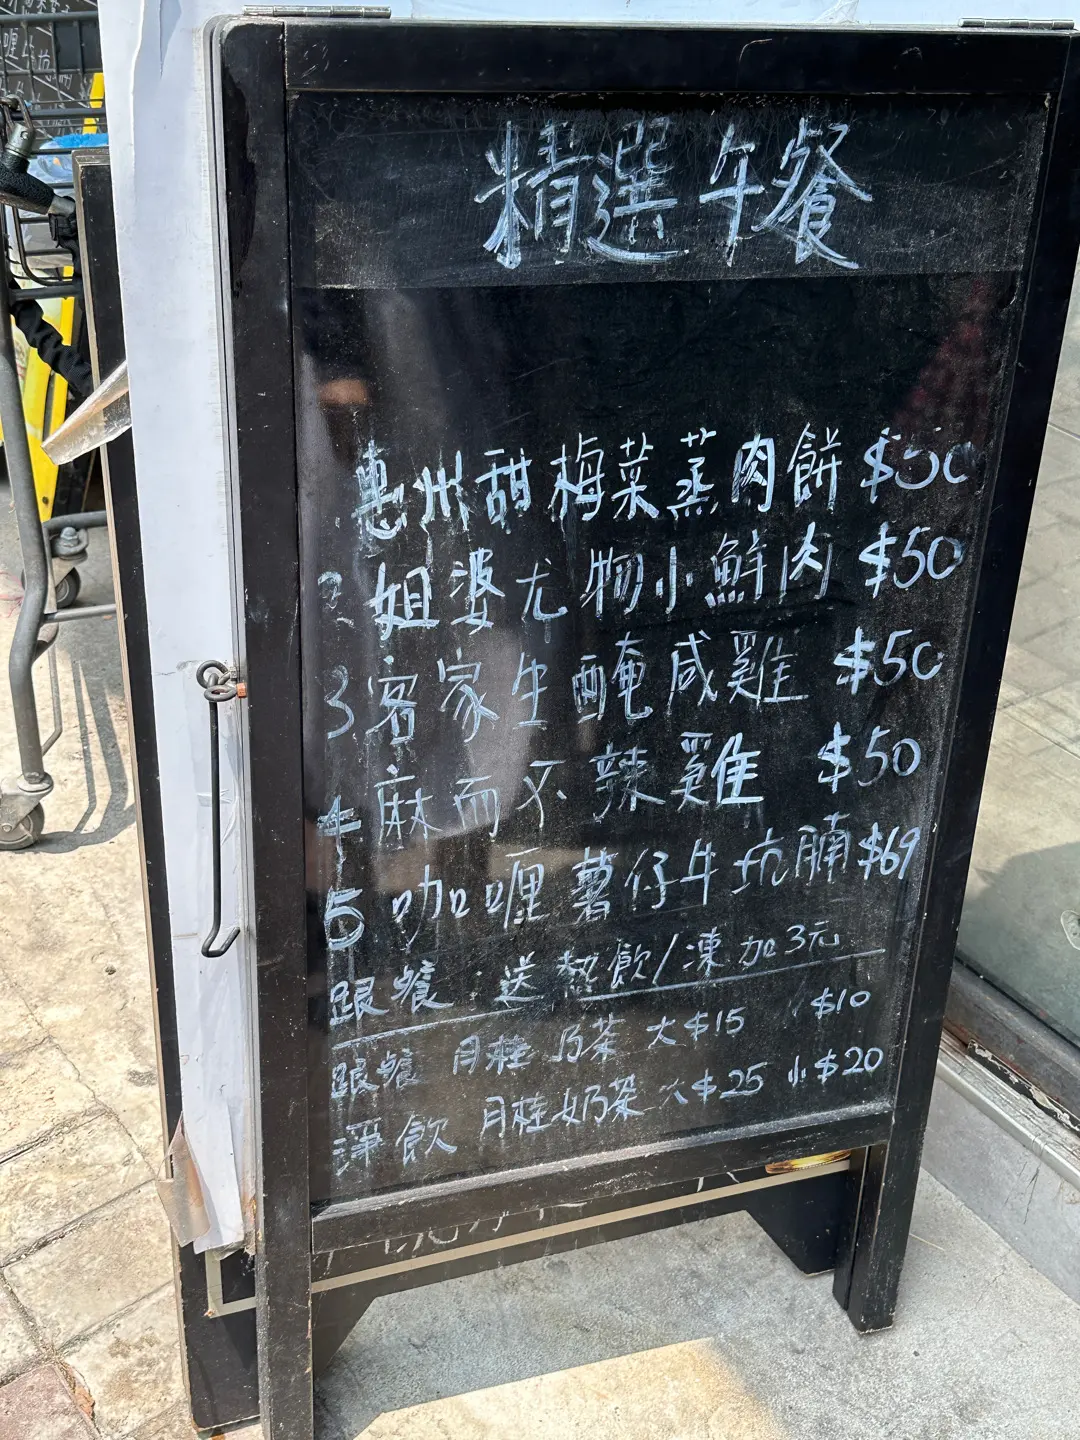 精選午餐
惠州甜梅菜蒸肉餅 $50
2 姐婆尤物小鮮肉 $50
3 客家生醃咸雞 $50
4 麻而不辣雞 $50
5 咖喱薯仔牛坑腩 $69
跟餐 送熱飲/凍加3元
跟餐 月桂奶茶 大$15 $10
淨飲 月桂奶茶 大$25 小$20